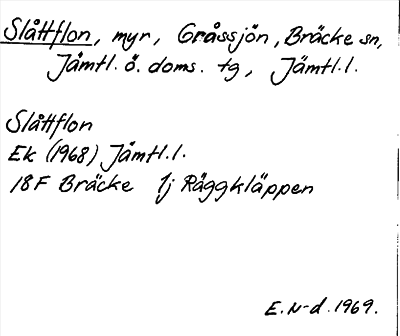 Slåttflon, myr, Gråssjön, Bräcke sn,
Jämtl. ö. doms. tg, Jämtl. l.
Slåttflon
Ek (1968) Jämtl. l.
18F Bräcke 1j Räggkläppen
E. N-d. 1969.